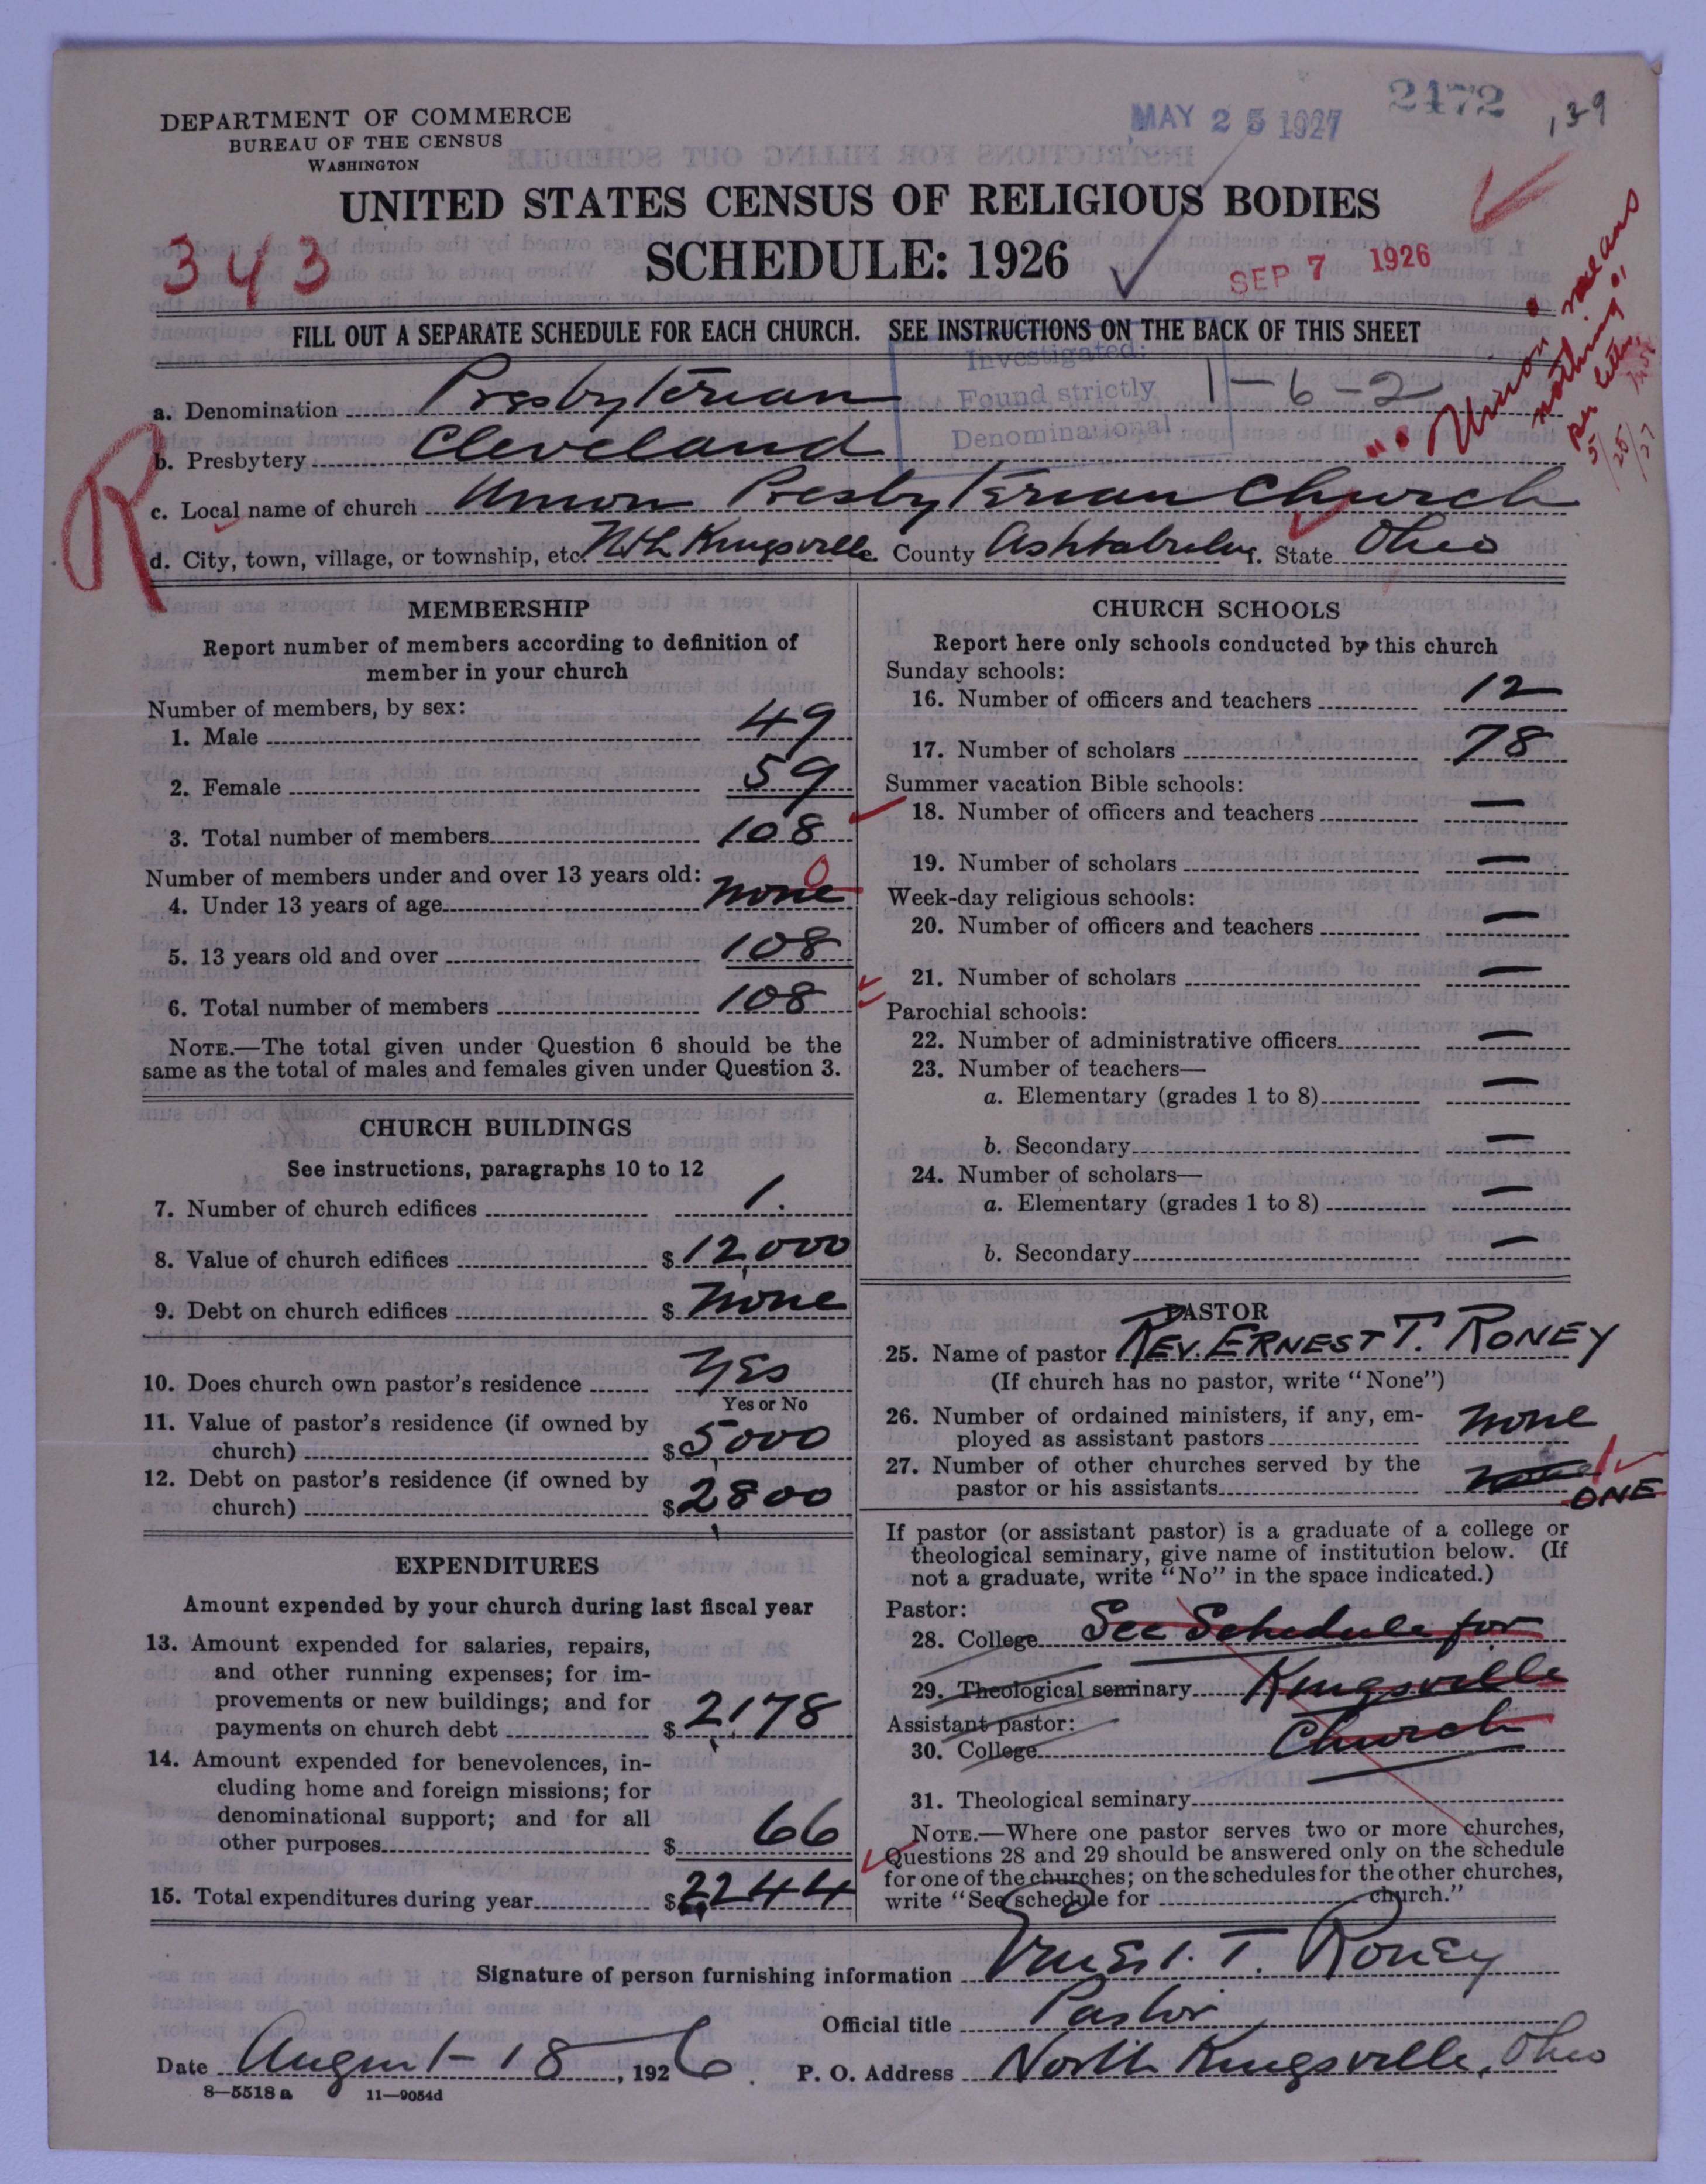 DEPARTMENT OF COMMERCE
BUREAU OF THE CENSUS
WASHINGTON
MAY 25 1927
2472
139
UNITED STATES CENSUS OF RELIGIOUS BODIES
SCHEDULE: 1926
343
SEP 7 1926
"Union" means nothing" per letter 5/25/27
FILL OUT A SEPARATE SCHEDULE FOR EACH CHURCH. SEE INSTRUCTIONS ON THE BACK OF THIS SHEET
Investigated:
Found strictly
Denominational
1-6-2
R
a. Denomination Presbyterian
b. Presbytery Cleveland
c. Local name of church Union Presbyterian Church
d. City, town, village, or township, etc. Nth Kingsville e. County Ashtabula f. State Ohio
MEMBERSHIP
Report number of members according to definition of
member in your church
Number of members, by sex:
1. Male 49
2. Female 59
3. Total number of members 108
Number of members under and over 13 years old:
4. Under 13 years of age none 0
5. 13 years old and over 108
6. Total number of members 108
NOTE.—The total given under Question 6 should be the
same as the total of males and females given under Question 3.
CHURCH BUILDINGS
See instructions, paragraphs 10 to 12
7. Number of church edifices 1.
8. Value of church edifices $12,000
9. Debt on church edifices $ none
10. Does church own pastor's residence Yes
Yes or No
11. Value of pastor's residence (if owned by
church) $5000
12. Debt on pastor's residence (if owned by
church) $2800
EXPENDITURES
Amount expended by your church during last fiscal year
13. Amount expended for salaries, repairs,
and other running expenses; for im-
provements or new buildings; and for
payments on church debt $2,178
14. Amount expended for benevolences, in-
cluding home and foreign missions; for
denominational support; and for all
other purposes $ 66
15. Total expenditures during year $2244
CHURCH SCHOOLS
Report here only schools conducted by this church
Sunday schools:
16. Number of officers and teachers 12
17. Number of scholars 78
Summer vacation Bible schools:
18. Number of officers and teachers —
19. Number of scholars —
Week-day religious schools:
20. Number of officers and teachers —
21. Number of scholars —
Parochial schools:
22. Number of administrative officers —
23. Number of teachers—
a. Elementary (grades 1 to 8) —
b. Secondary —
24. Number of scholars—
a. Elementary (grades 1 to 8) —
b. Secondary —
PASTOR
25. Name of pastor REV. ERNEST T. RONEY
(If church has no pastor, write "None")
26. Number of ordained ministers, if any, em-
ployed as assistant pastors none
27. Number of other churches served by the
pastor or his assistants 1
ONE
If pastor (or assistant pastor) is a graduate of a college or
theological seminary, give name of institution below. (If
not a graduate, write "No" in the space indicated.)
Pastor:
28. College See Schedule for
29. Theological seminary Kingsville
Assistant pastor:
30. College Church
31. Theological seminary
NOTE.—Where one pastor serves two or more churches,
Questions 28 and 29 should be answered only on the schedule
for one of the churches; on the schedules for the other churches,
write "See schedule for church."
Signature of person furnishing information Ernest. T. Roney
Official title Pastor
Date August 18, 1926. P. O. Address North Kingsville, Ohio
8—5518 a 11—9054d